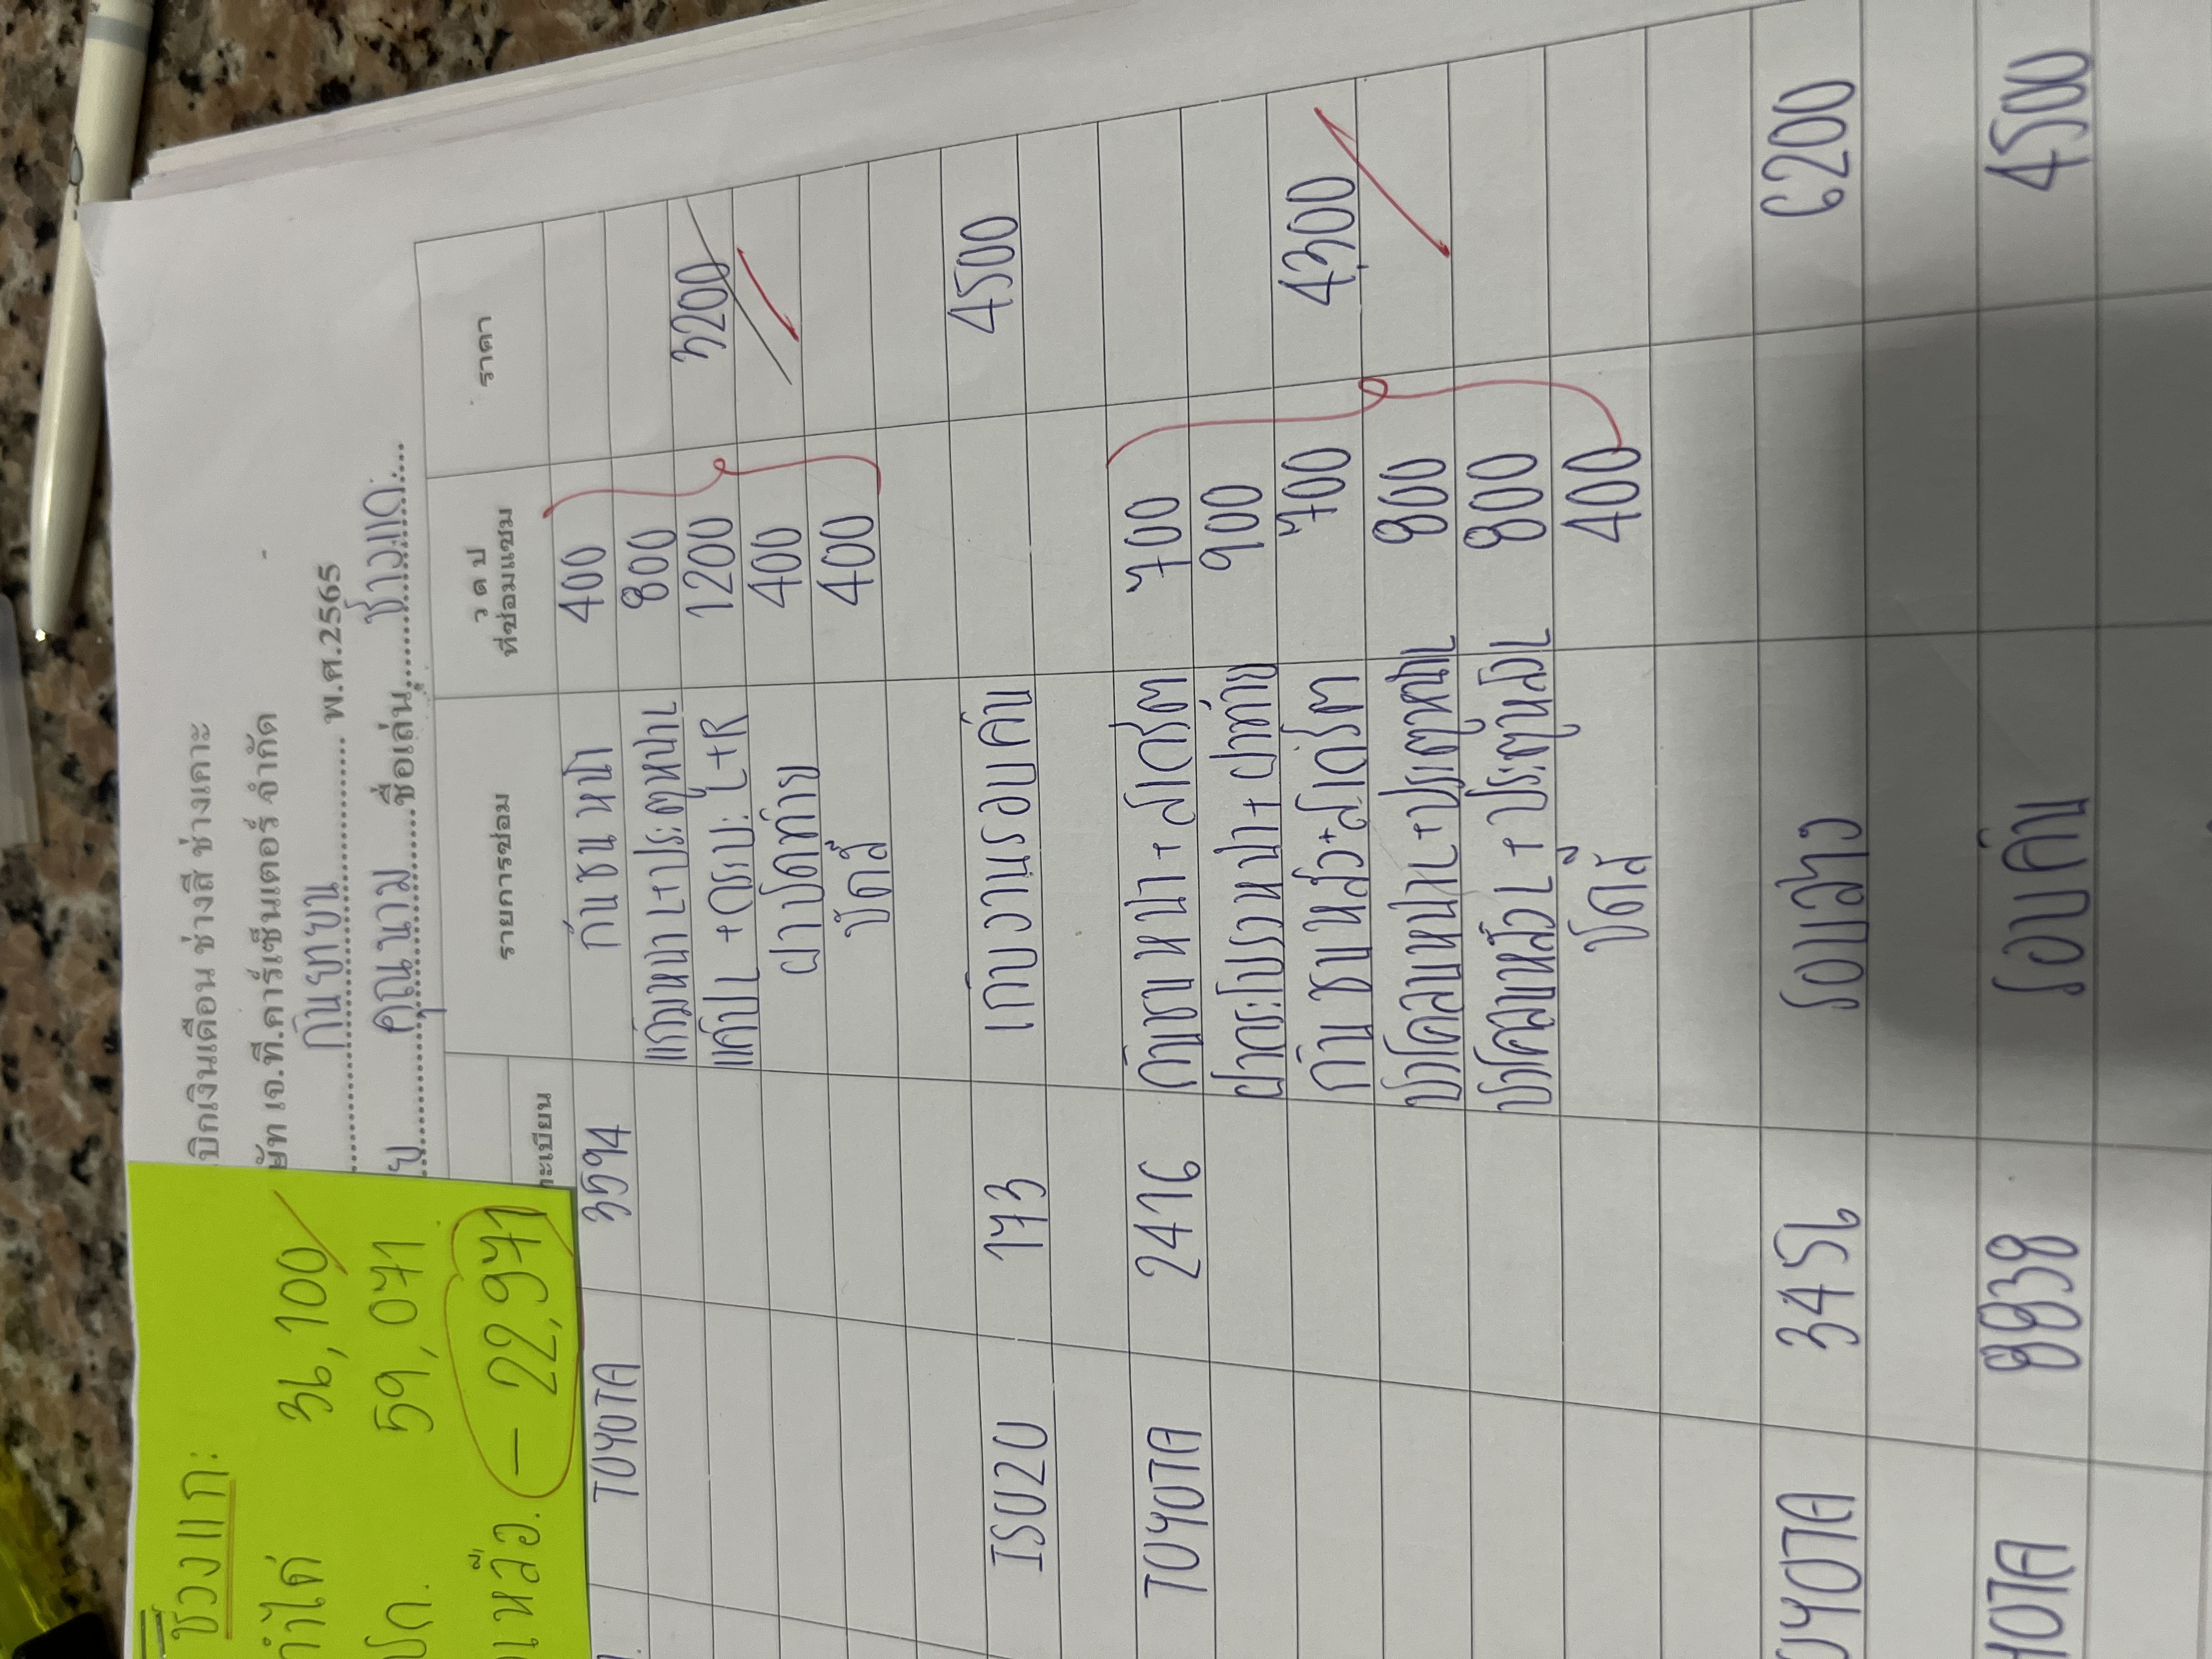 ช่างแกะ
ทำได้ 36,100
ปก. 59,071
เหลือ. - 22,971
บิกเงินเดือน ช่างสี ช่างเคาะ
ษัท เอ.ที.คาร์เซ็นเตอร์ จำกัด
กันยายน พ.ศ.2565
คุณนาม ชื่อเล่น ช่างแกะ
ทะเบียน รายการซ่อม ว ด ป ที่ซ่อมแซม ราคา
TOYOTA 3594 กันชนหน้า 400
แก้มหน้าL+ประตูหน้าL 800
แค็ปL+กระบะ L+R 1200 3200
ฝาปิดท้าย 400
ปัดสี 400
ISUZU 173 เก็บงานรอบคัน 4500
TOYOTA 2416 กันชนหน้า+สเกิร์ต 700
ฝากระโปรงหน้า+ฝาท้าย 900
กันชนหลัง+สเกิร์ต 700 4300
บังโคลนหน้าL+ประตูหน้าL 800
บังโคลนหลังL+ประตูหลังL 800
ปัดสี 400
OYOTA 3456 รอบล่าง 6200
YOTA 8838 รอบคัน 4500